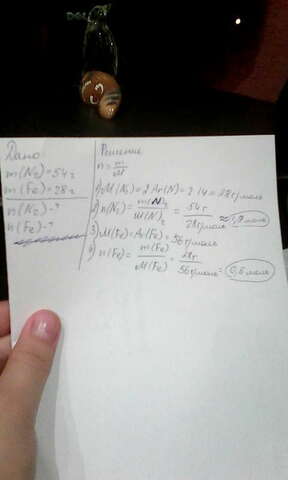 Дано:
m(N₂)=54г
m(Fe)=28г
n(N₂)-?
n(Fe)-?
Решение
n=m/M
1) M(N₂)=2Ar(N)=2·14=28г/моль
2) n(N₂)=m(N₂)/M(N)₂=54г/28г/моль≈1,9моль
3) M(Fe)=Ar(Fe)=56г/моль
4) n(Fe)=m(Fe)/M(Fe)=28г/56г/моль=0,5моль